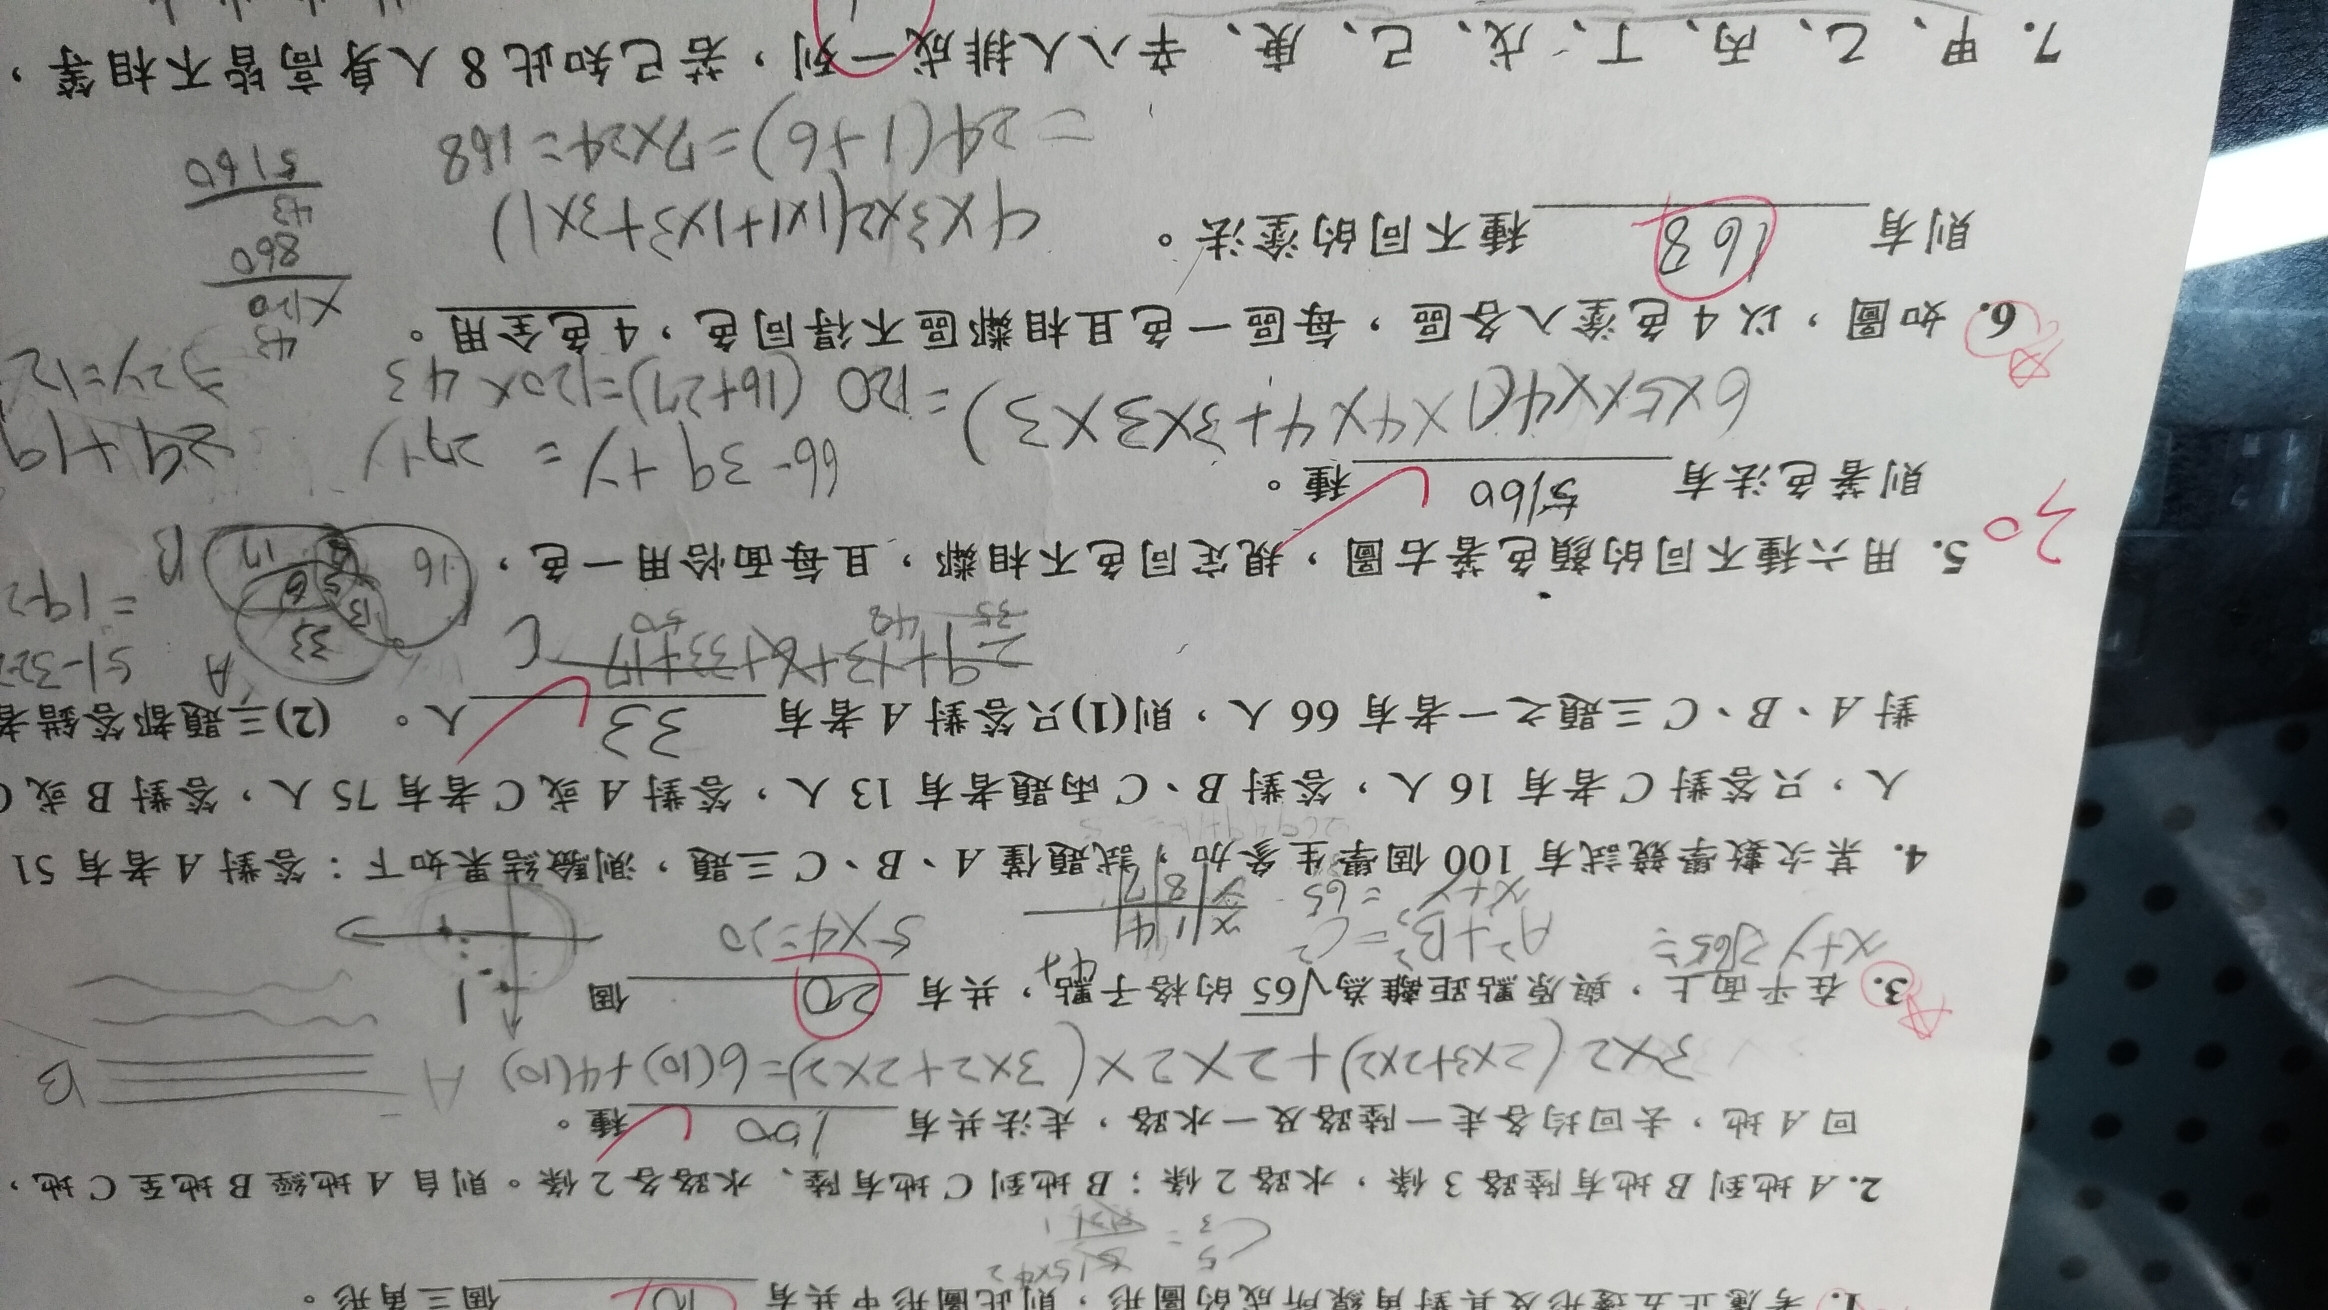 1. 考慮正五邊形及其對角線所成的圖形，則此圖形中共有 10 個三角形。
2. A 地到 B 地有陸路 3 條，水路 2 條；B 地到 C 地有陸、水路各 2 條。則自 A 地經 B 地至 C 地，
回 A 地，去回均各走一陸路及一水路，走法共有 100 種。
3×2(2×3+2×2)+2×2×(3×2+2×2)=6(10)+4(10)
A B
3. 在平面上，與原點距離為√65 的格子點，共有 20 個
x+y 65= A²+B²=C² 5×4=20
x+y =65
x 1 4
y 8 7
4. 某次數學競試有 100 個學生參加，試題僅 A、B、C 三題，測驗結果如下：答對 A 者有 51
人，只答對 C 者有 16 人，答對 B、C 兩題者有 13 人，答對 A 或 C 者有 75 人，答對 B 或 C
對 A、B、C 三題之一者有 66 人，則(1)只答對 A 者有 33 人。 (2)三題都答錯者
A 51-32
C 33 13 6 16 17 B =192
5. 用六種不同的顏色著右圖，規定同色不相鄰，且每面恰用一色，
20
則著色法有 5160 種。
66-39+y = 27+y 29+19
6×5×4(1×4×4+3×3×3)=120 (16+27)=120×43 ⇒2y=12
6. 如圖，以 4 色塗入各區，每區一色且相鄰區不得同色，4 色全用。
43
×120
860
43
5160
則有 168 種不同的塗法。
4×3×2(1×1+1×3+3×1)
=24(1+6)=7×24=168
7. 甲、乙、丙、丁、戊、己、庚、辛八人排成一列，若已知此 8 人身高皆不相等，